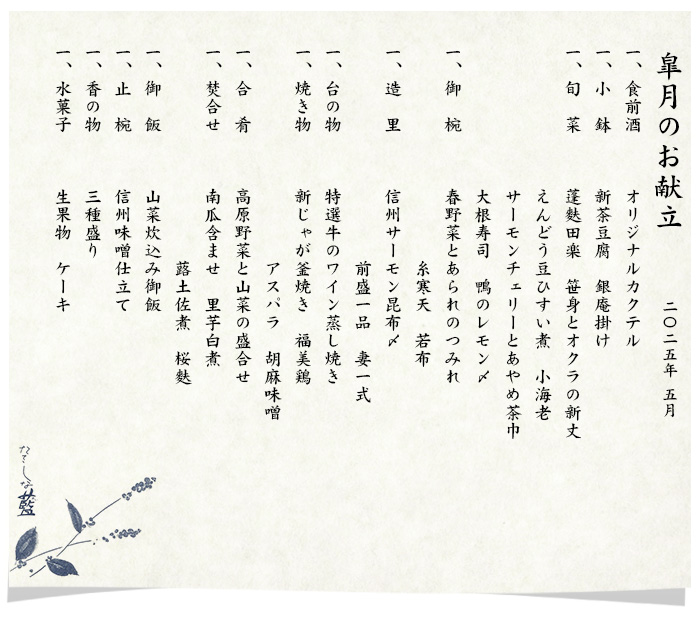 皐月のお献立　二〇二五年 五月
一、食前酒　オリジナルカクテル
一、小　鉢　新茶豆腐　銀庵掛け
一、旬　菜　蓬麩田楽　笹身とオクラの新丈
えんどう豆ひすい煮　小海老
サーモンチェリーとあやめ茶巾
大根寿司　鴨のレモン〆
一、御　椀　春野菜とあられのつみれ
糸寒天　若布
一、造　里　信州サーモン昆布〆
前盛一品　妻一式
一、台の物　特選牛のワイン蒸し焼き
一、焼き物　新じゃが釜焼き　福美鶏
アスパラ　胡麻味噌
一、合　肴　高原野菜と山菜の盛合せ
一、焚合せ　南瓜含ませ　里芋白煮
蕗土佐煮　桜麩
一、御　飯　山菜炊込み御飯
一、止　椀　信州味噌仕立て
一、香の物　三種盛り
一、水菓子　生果物　ケーキ
たてしな藍